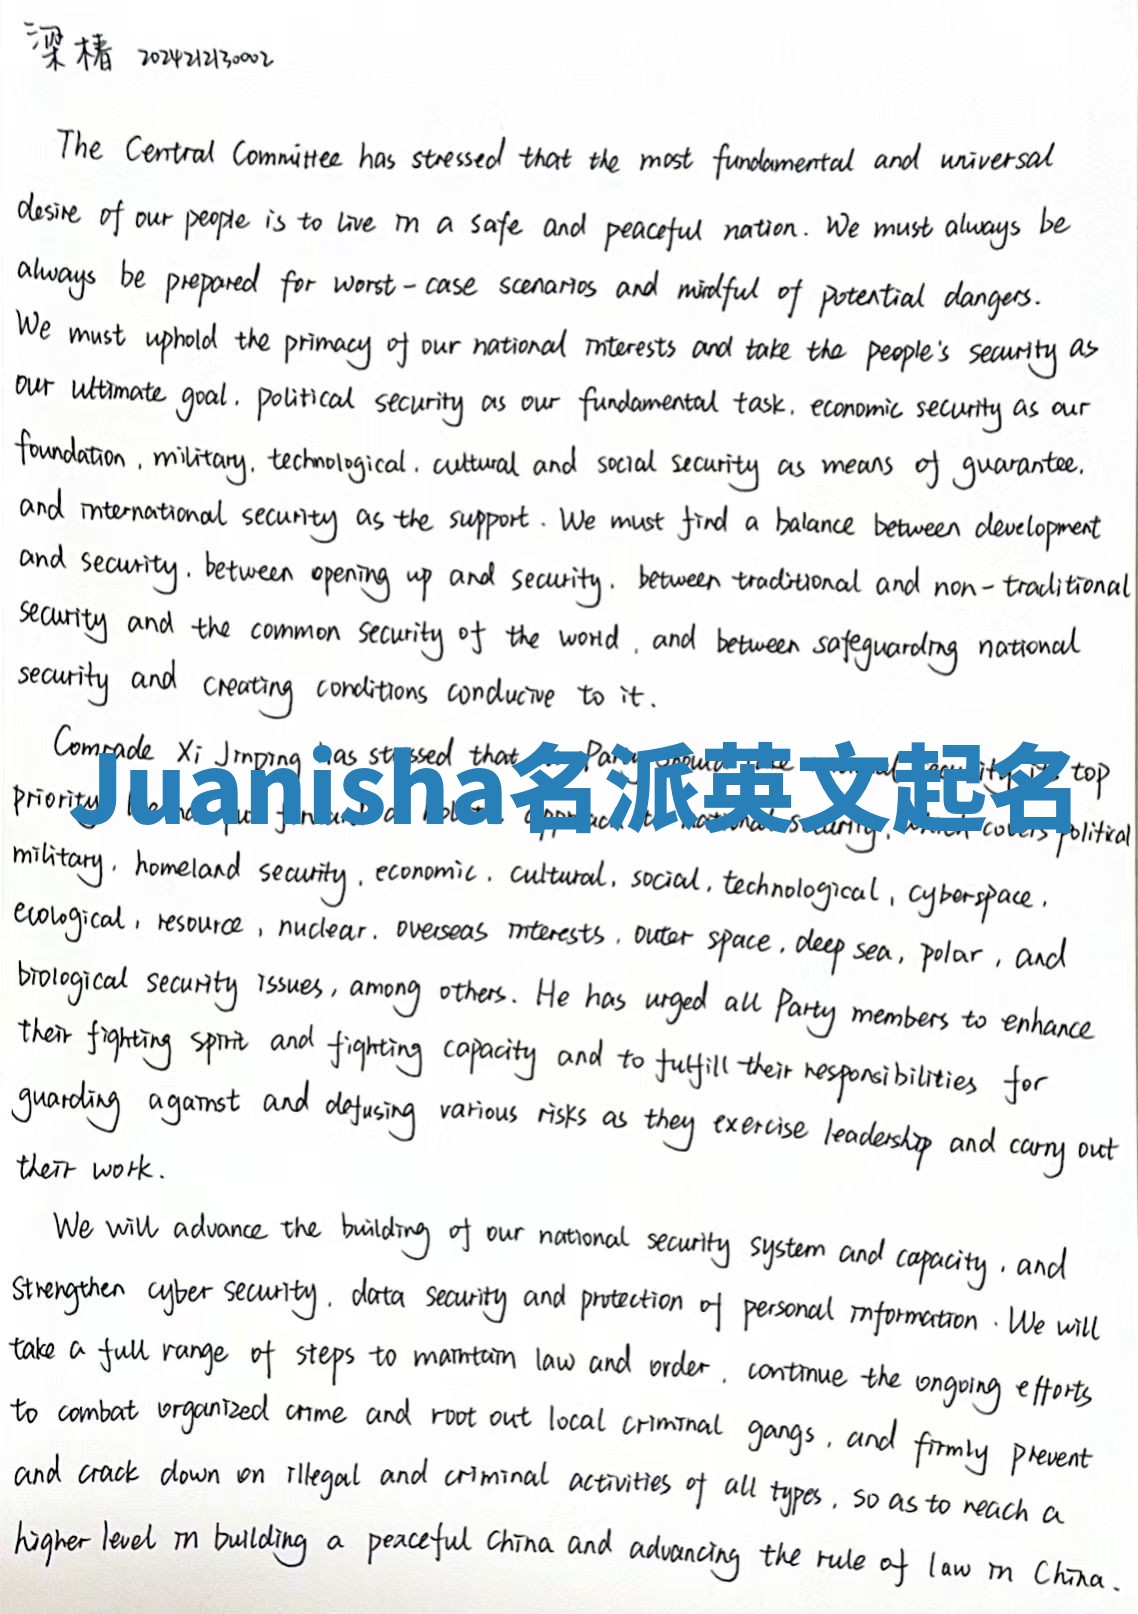 梁椿 2024212130002
The Central Committee has stressed that the most fundamental and universal
desire of our people is to live in a safe and peaceful nation. We must always be
always be prepared for worst-case scenarios and mindful of potential dangers.
We must uphold the primacy of our national interests and take the people's security as
our ultimate goal, political security as our fundamental task, economic security as our
foundation, military, technological, cultural and social security as means of guarantee,
and international security as the support. We must find a balance between development
and security, between opening up and security, between traditional and non-traditional
security and the common security of the world, and between safeguarding national
security and creating conditions conducive to it.
Comrade Xi Jinping has stressed that Party should top
Juanisha名派英文起名
priority national security, which covers political
military, homeland security, economic, cultural, social, technological, cyberspace,
ecological, resource, nuclear, overseas interests, outer space, deep sea, polar, and
biological security issues, among others. He has urged all Party members to enhance
their fighting spirit and fighting capacity and to fulfill their responsibilities for
guarding against and defusing various risks as they exercise leadership and carry out
their work.
We will advance the building of our national security system and capacity, and
strengthen cyber security, data security and protection of personal information. We will
take a full range of steps to maintain law and order, continue the ongoing efforts
to combat organized crime and root out local criminal gangs, and firmly prevent
and crack down on illegal and criminal activities of all types, so as to reach a
higher level in building a peaceful China and advancing the rule of law in China.